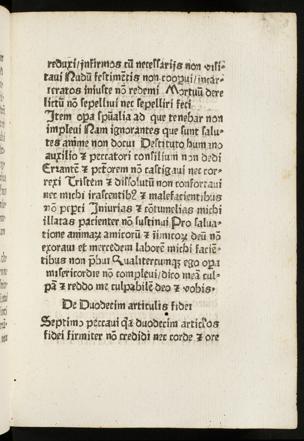 reduxi/infirmos cū necessarijs non visi-
taui Nudū festimētis non cooqui/incar-
ceratos iniuste nō redemi Mortuū dere
lictū nō sepelliui nec sepelliri feci
Item opa spūalia ad que tenebar non
impleui Nam ignorantes que sunt salu-
tes anime non docui Destituto humano
auxilio ⁊ peccatori consilium non dedi
Errantē ⁊ pctōrem nō castigaui nec cor-
rexi Tristem ⁊ dissolutū non confortaui
nec michi irascentibꝫ ⁊ malefacientibus
nō peperci Iniurias ⁊ cōtumelias michi
illatas patienter nō sustinui Pro salua-
tione animaꝝ amicorū ⁊ iimicoꝝ deū nō
exoraui et mercedem laborē michi faciē-
tibus non p̄bui Qualitercunqꝫ ego opa
misericordie nō compleui/dico meā cul-
pā ⁊ reddo me culpabilē deo ⁊ vobis·
De Duodecim articulis fidei
Septimo peccaui qꝛ duodecim articlos
fidei firmiter nō credidi nec corde ⁊ ore